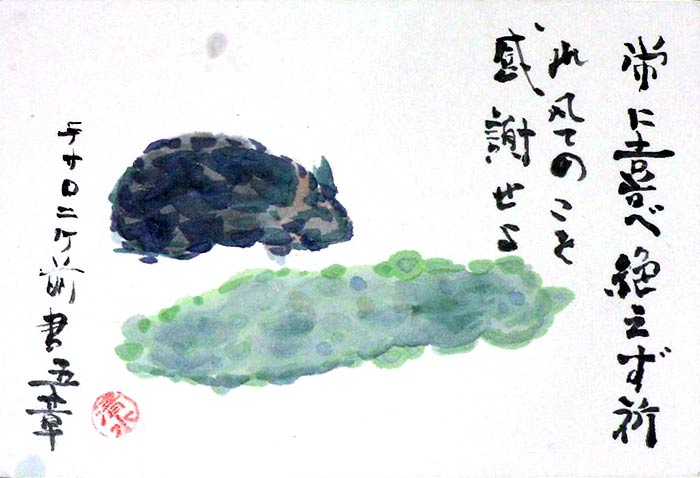 常に喜べ絶えず祈
れ凡てのことを
感謝せよ
テサロニケ前書五章